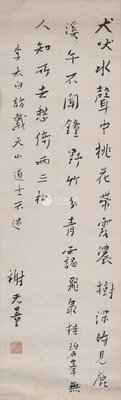 犬吠水聲中桃花帶露濃樹深時見鹿
溪午不聞鐘野竹分青靄飛泉挂碧峯無
人知所去愁倚兩三松
李太白訪戴天山道士不遇
謝无量